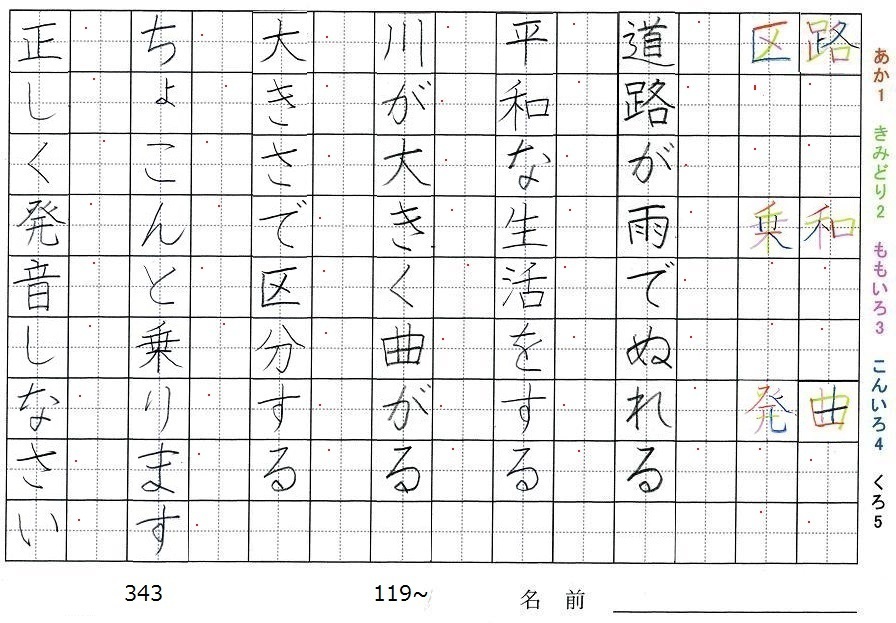 あか1 きみどり2 ももいろ3 こんいろ4 くろ5
路 和 曲
区 乗 発
道路が雨でぬれる
平和な生活をする
川が大きく曲がる
大きさで区分する
ちょこんと乗ります
正しく発音しなさい
343 119~ 名前